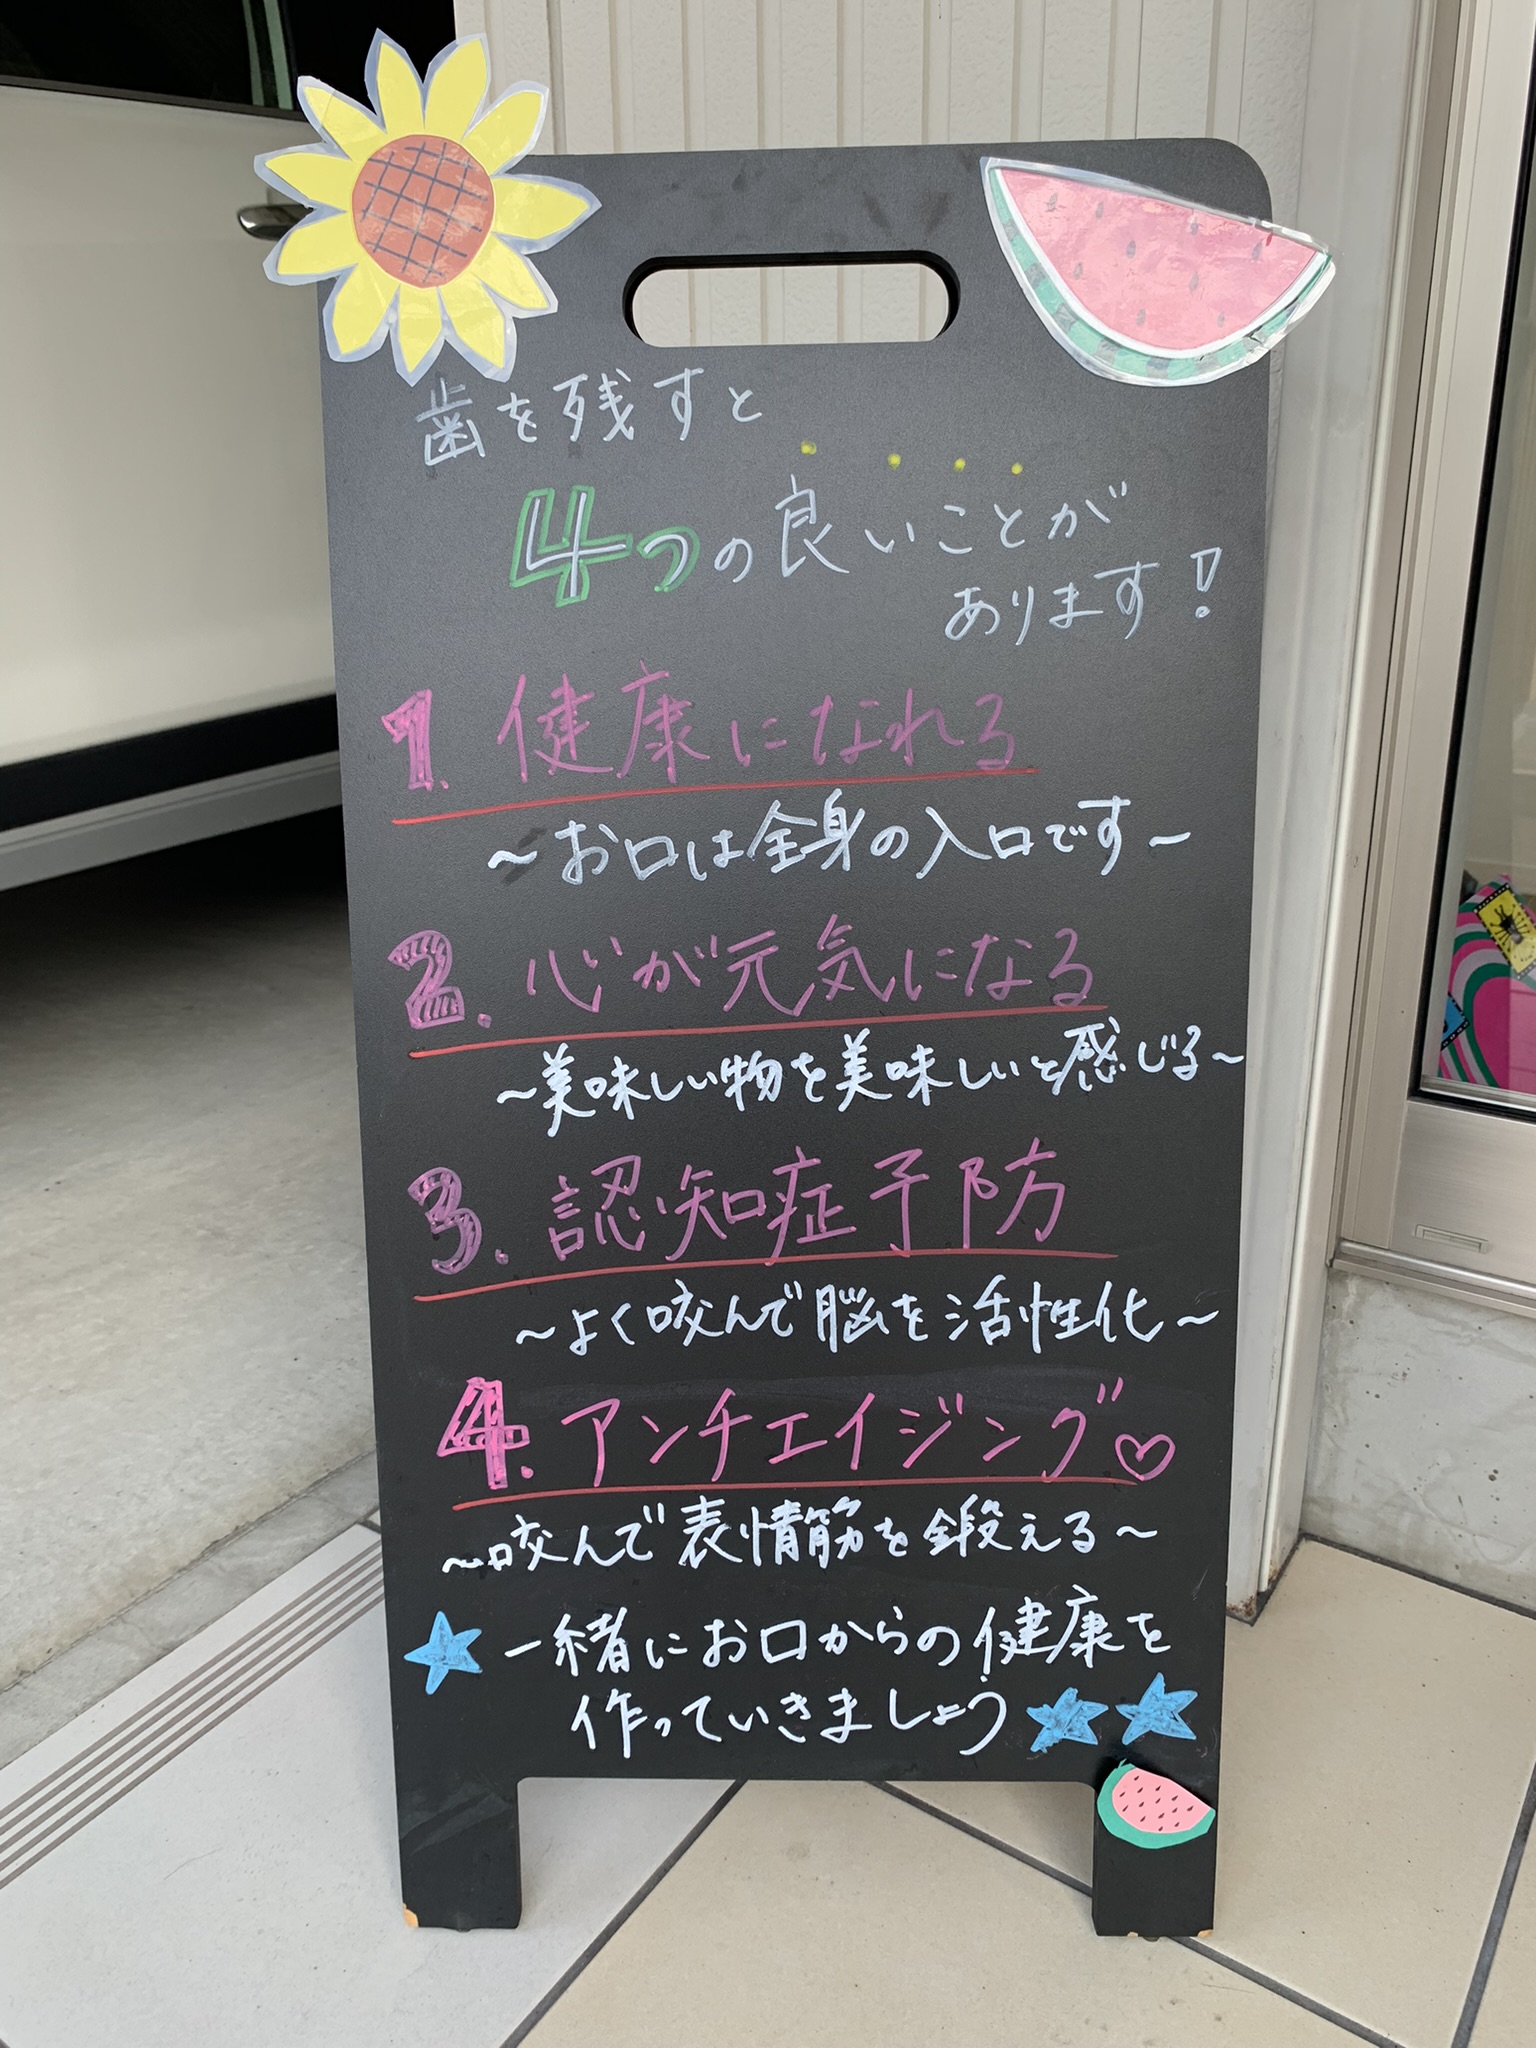 歯を残すと
4つの良いことが
あります!
1. 健康になれる
~お口は全身の入口です~
2. 心が元気になる
~美味しい物を美味しいと感じる~
3. 認知症予防
~よく咬んで脳を活性化~
4. アンチエイジング♡
~咬んで表情筋を鍛える~
★一緒にお口からの健康を
作っていきましょう★★